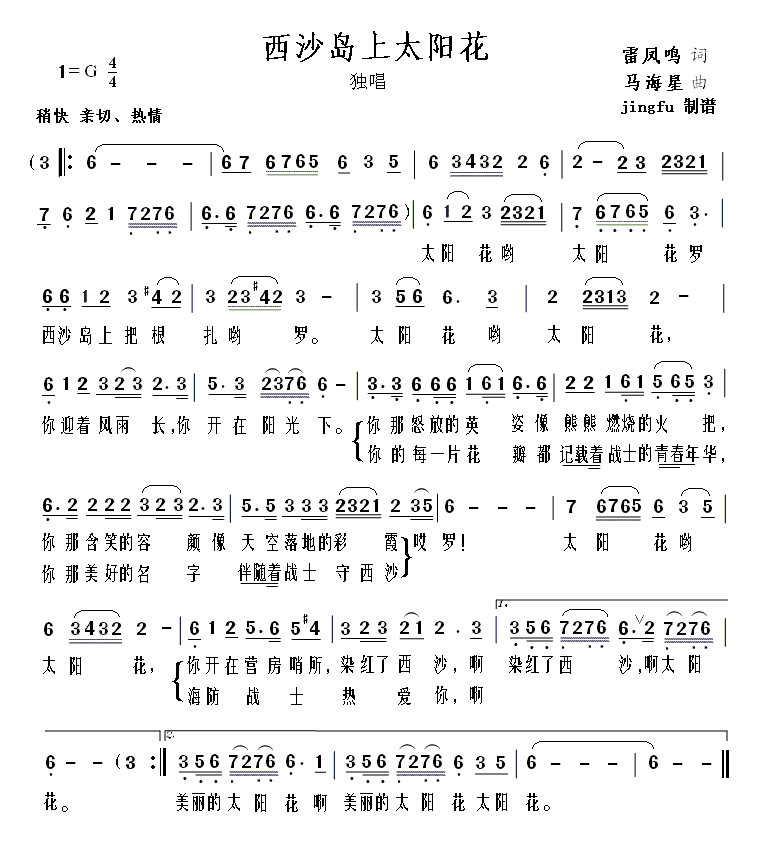 西沙岛上太阳花
雷凤鸣 词
1=G 4/4
独唱
马海星 曲
jingfu 制谱
稍快 亲切、热情
(3 ‖: 6 - - - | 67 6765 6 3 5 | 6 3432 2 6 | 2 - 23 2321 |
7 6 2 1 7276 | 6.6 7276 6.6 7276) | 6 12 3 2321 | 7 6765 6 3. |
太阳 花哟 太阳 花罗
66 12 3 #42 | 3 23#42 3 - | 3 56 6. 3 | 2 2313 2 - |
西沙岛上把根 扎哟 罗。 太阳 花哟 太阳 花,
612 323 2.3 | 5.3 2376 6 - | 3.3 666 161 6.6 | 22 161 565 3 |
你迎着风雨 长,你 开在 阳光 下。 你那怒放的英 姿像 熊熊 燃烧的火 把,
你的每一片花 瓣都 记载着战士的青春年华,
6.2 222 323 2.3 | 5.5 333 2321 2 35 | 6 - - - | 7 6765 6 3 5 |
你那含笑的容 颜像 天空落地的彩 霞 哎 罗! 太阳 花哟
你那美好的名 字 伴随着战士 守西沙
6 3432 2 - | 612 5.6 5#4 | 323 21 2 . 3 | 1. 356 7276 6.∨2 7276 |
太阳 花, 你开在营房哨所, 染红了西 沙, 啊 染红了西 沙,啊太阳
海防 战士 热 爱 你,啊
6 - - (3 :‖ 2. 356 7276 6. 1 | 356 7276 6 35 | 6 - - - | 6 - - ‖
花。 美丽的太阳花啊 美丽的太阳花太阳花。